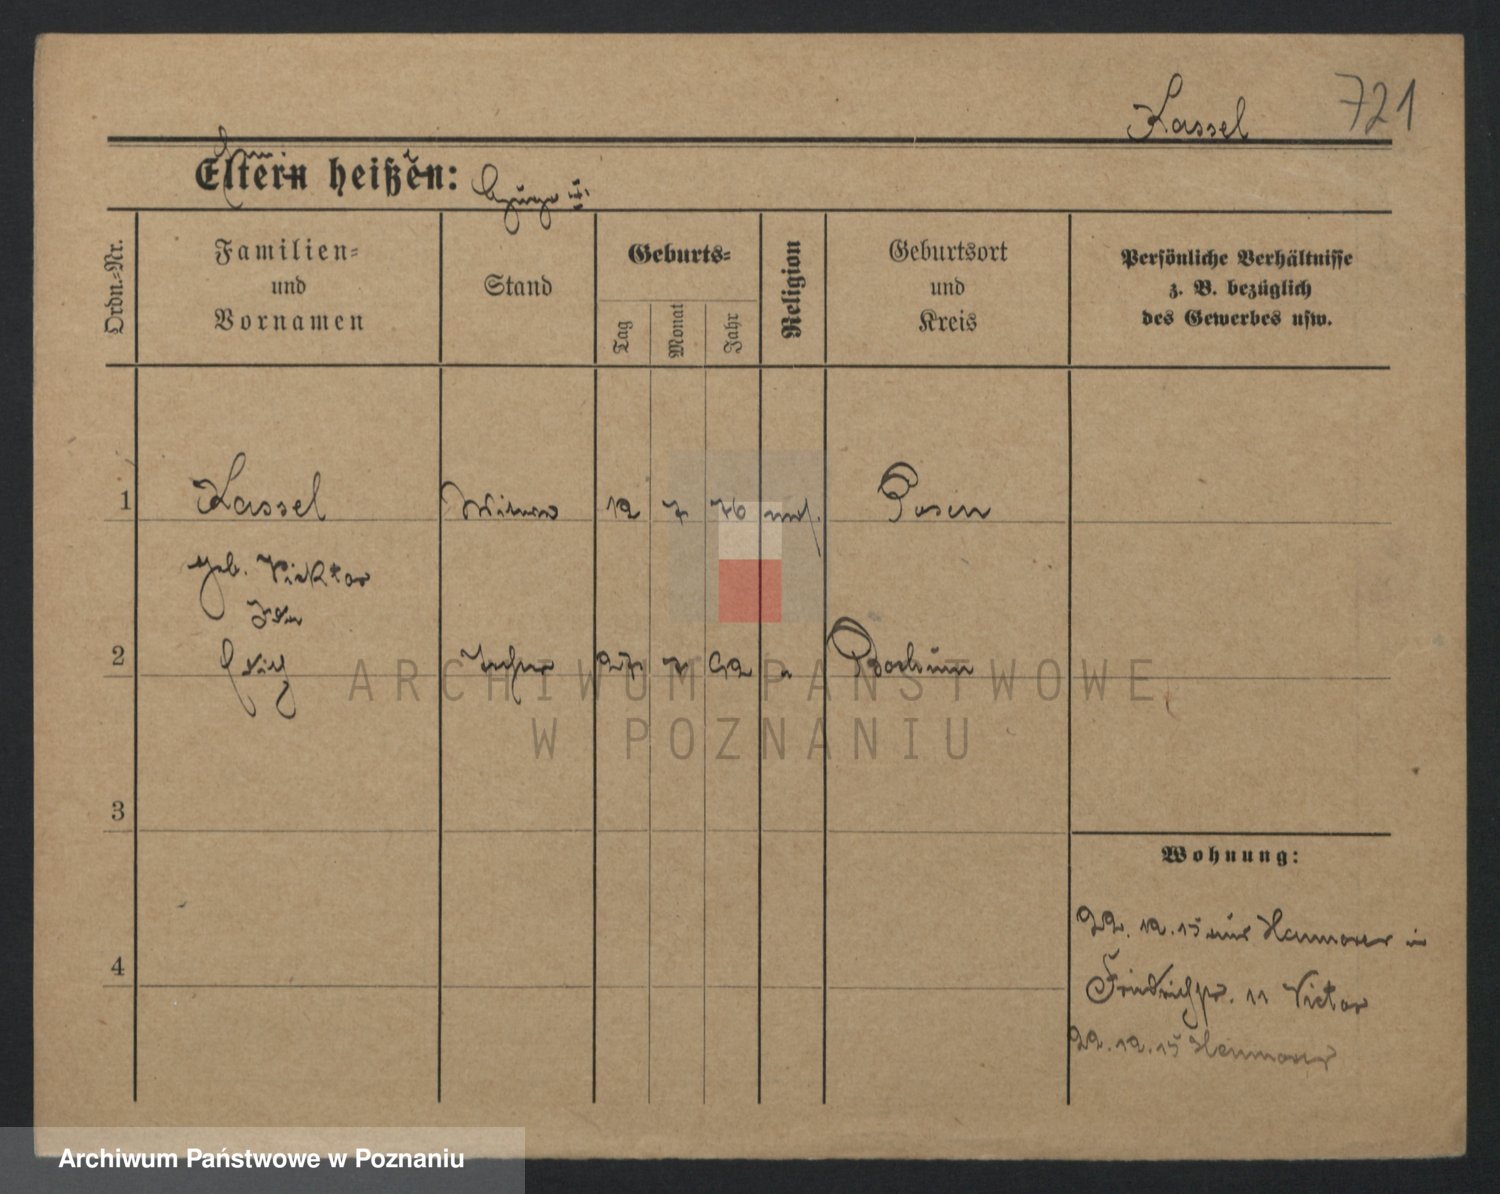 Kassel 721
Eltern heißen:
Ordn.=Nr.
Familien=
und
Vornamen
Stand
Geburts=
Tag
Monat
Jahr
Religion
Geburtsort
und
Kreis
Persönliche Verhältnisse
z. B. bezüglich
des Gewerbes usw.
1 Kassel Witwe 12 7 76 mos. Posen
geb. Viktor
Ida
2 27 7 92 Bochum
ARCHIWUM PAŃSTWOWE
W POZNANIU
3
Wohnung:
22. 12. 15 aus Hannover in
4
Friedrichstr. 11 Victor
22. 12. 15 Hannover
Archiwum Państwowe w Poznaniu